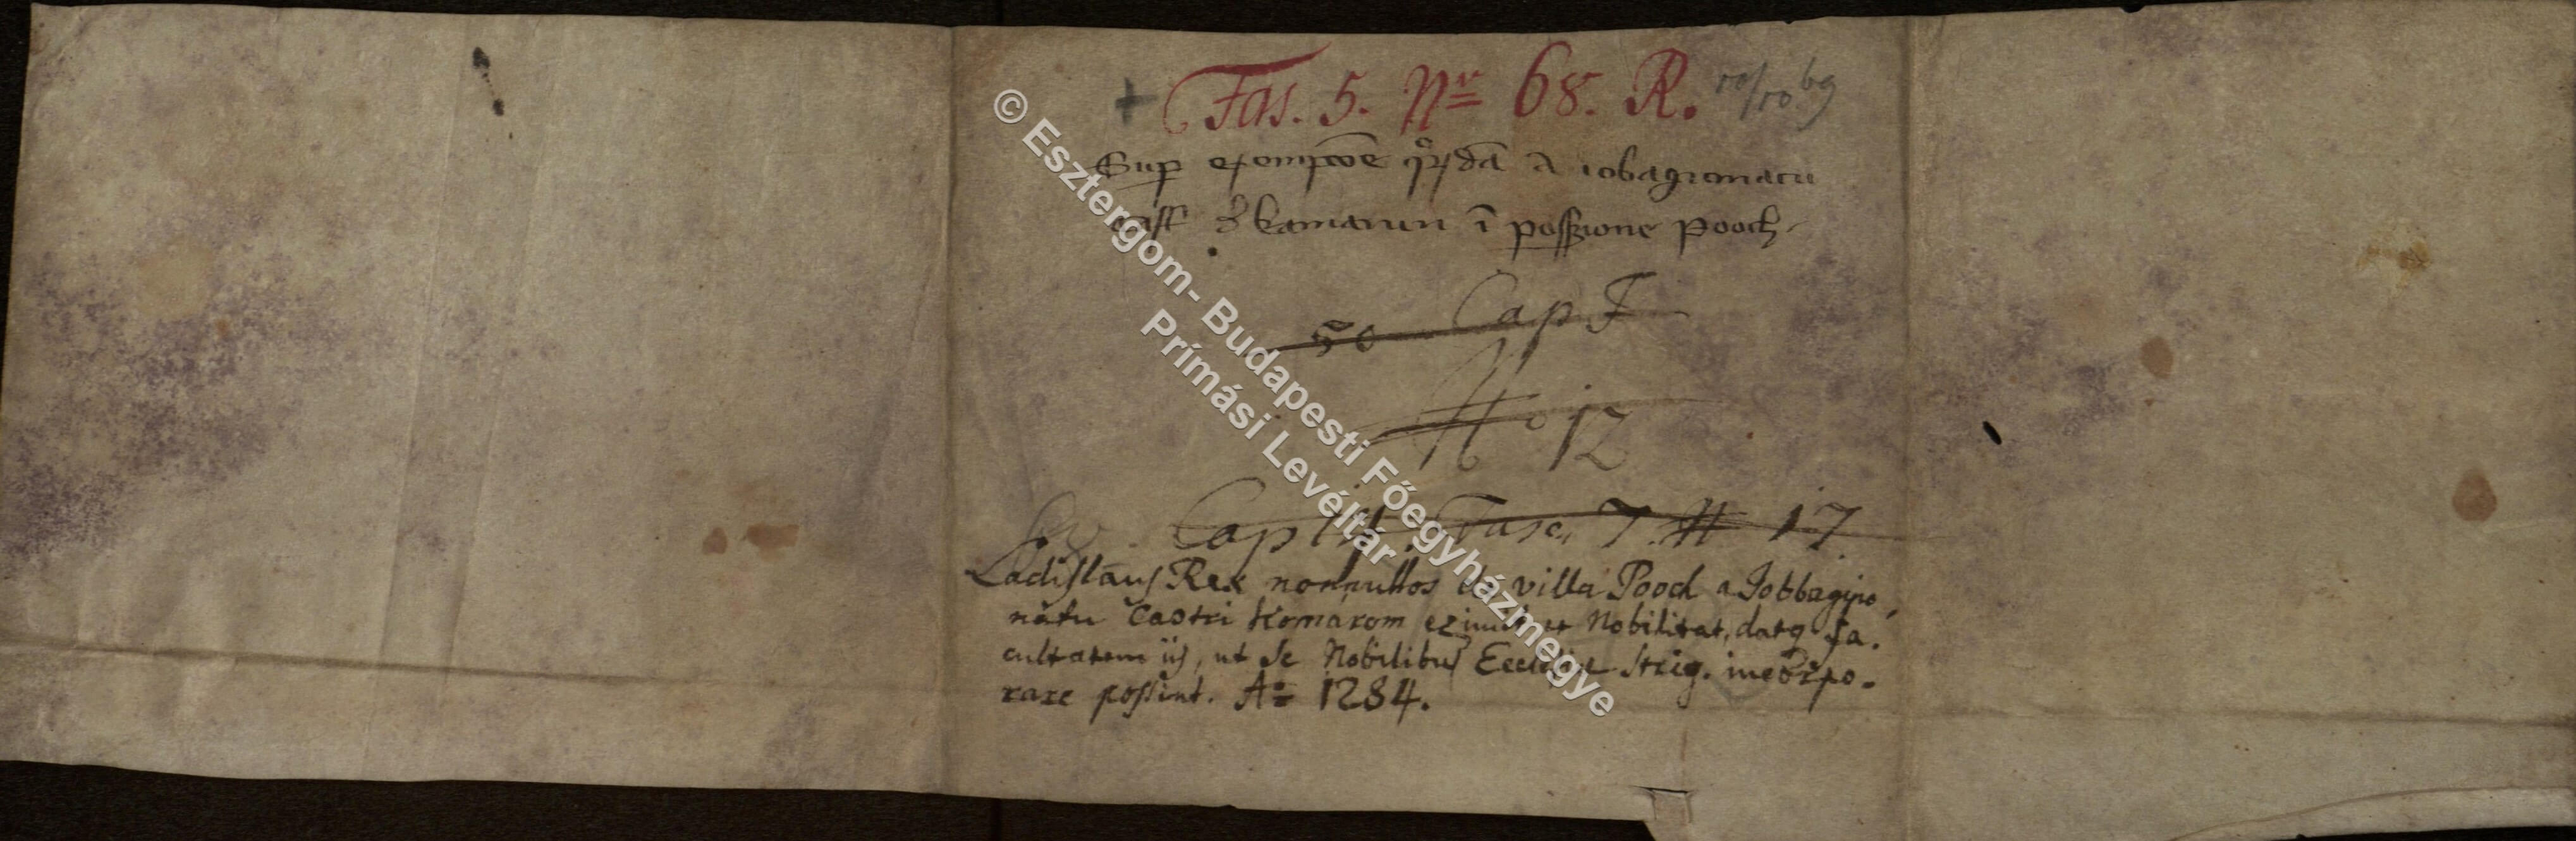 + Fas. 5. Nr 68. R.
Sup exemptoe qrdā a iobagionatu
cast de kamarun ī possione Pooch
50 Cap I
N o 12
Cap Fasc. 7. N 17.
Ladislaus Rex nonnullos de villa Pooch a Jobbagyio,
nātu Castri Komarom eximit et Nobilitat, datq fa.
cultatem iis, ut se Nobilibus Ecclesiae Strig. incorpo.
rare possint. Ao 1284.
© Esztergom- Budapesti Főegyházmegye
Prímási Levéltár